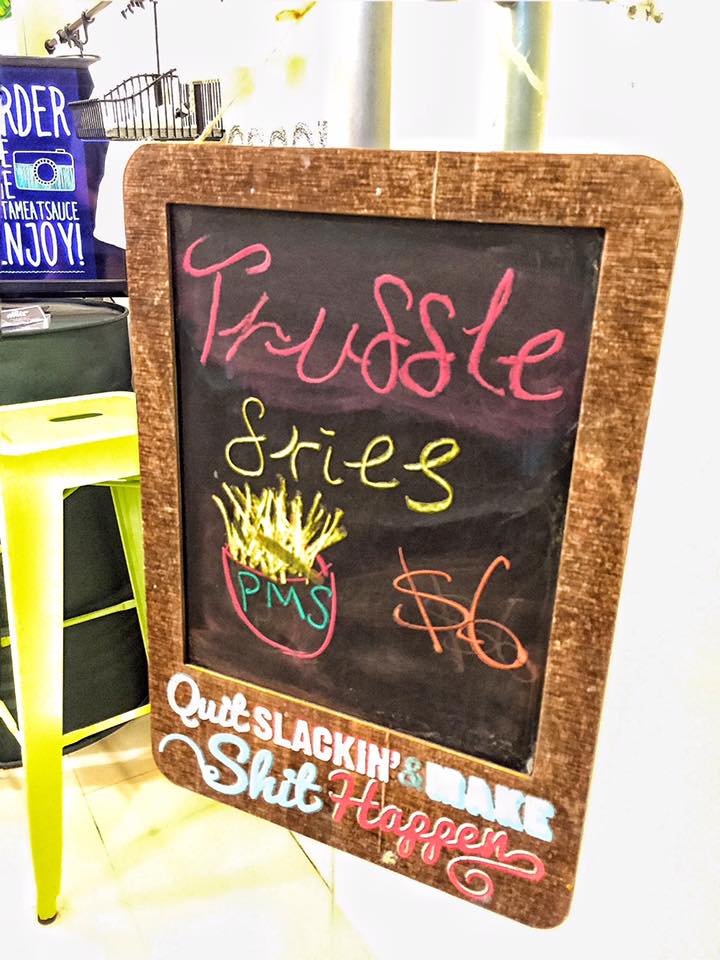 RDER
E
E
TAMEATSAUCE
ENJOY!
Truffle
fries
PMS
$6
Quit SLACKIN' & MAKE
Shit Happen